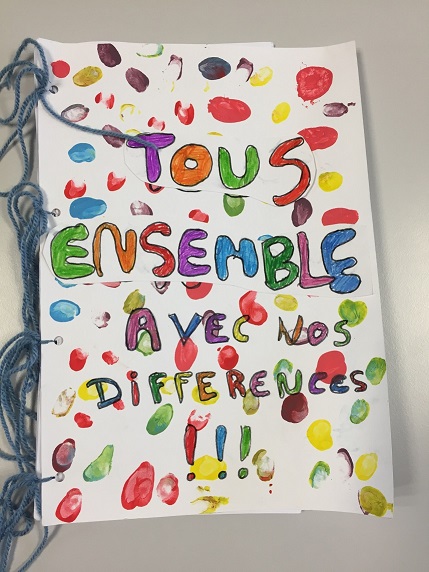 TOUS
ENSEMBLE
AVEC NOS
DiFFERENCES
!!!